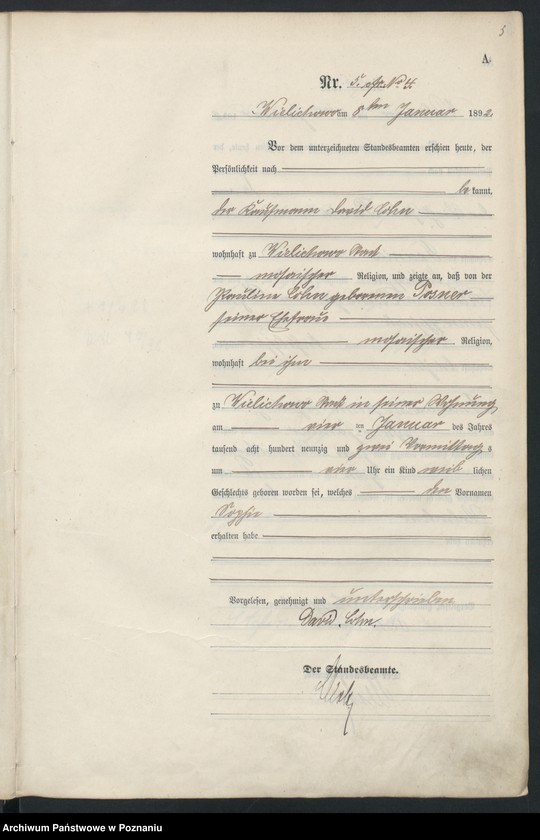 5
A.
Nr. 5.
Wielichowo am 8ten Januar 1892.
Vor dem unterzeichneten Standesbeamten erschien heute, der
Persönlichkeit nach
be kannt,
der Kaufmann David Cohn
wohnhaft zu Wielichowo Stadt
mosaischer Religion, und zeigte an, daß von der
Pauline Cohn geborenen Posner
seiner Ehefrau
mosaischer Religion,
wohnhaft bei ihm
zu Wielichowo Stadt in seiner Wohnung
am vier ten Januar des Jahres
tausend acht hundert neunzig und zwei Vormittag s
um vier Uhr ein Kind weib lichen
Geschlechts geboren worden sei, welches den Vornamen
Sophie
erhalten habe
Vorgelesen, genehmigt und unterschrieben
David Cohn.
Der Standesbeamte.
Archiwum Państwowe w Poznaniu